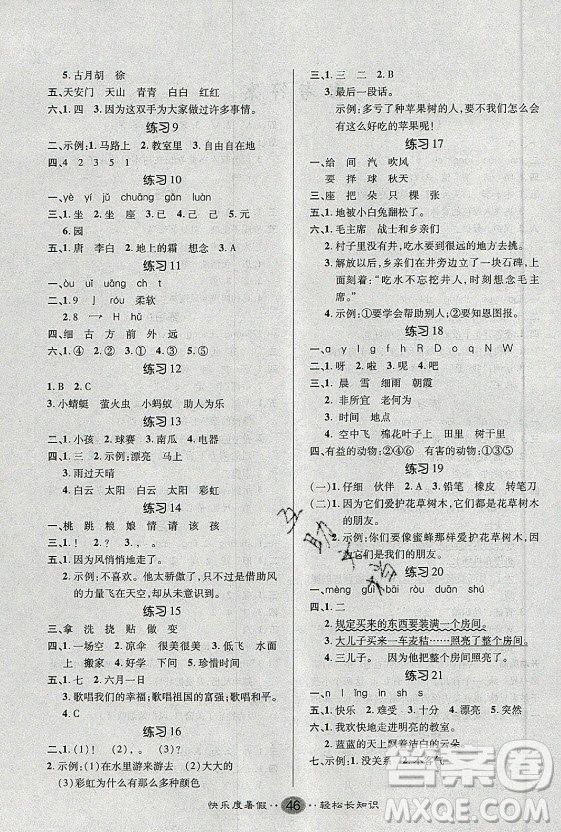 5. 古月胡 徐
五、天安门 天山 青青 白白 红红
六、1. ① 2. ③ 3. 因为这双手为大家做过许多事情。
练习 9
二、示例：1. 马路上 2. 教室里 3. 自由自在地
四、4 2 3 5 1
练习 10
一、yè yí jǔ chuāng gān luàn
四、1. 坐 2. 座 3. 作 4. 做 5. 圆
6. 园
五、1. 唐 李白 2. 地上的霜 想念 3. A
练习 11
一、òu uǐ uāng ch t
二、1. 9 J róu 柔软
2. 8 一 H hǔ
四、细 古 方 前 外 远
六、1. ④ 2. ② 3. ① 4. ③
练习 12
二、1. B 2. C
3. 小蜻蜓 萤火虫 小蚂蚁 助人为乐
练习 13
二、1. 小孩 2. 球赛 3. 南瓜 4. 电器
四、1. 2 2. 示例：漂亮 马上
3. 雨过天晴
4. 白云 太阳 白云 太阳 彩虹
练习 14
一、桃 跳 粮 娘 情 请 该 孩
五、1. 因为风悄悄地走了。
2. 示例：不喜欢。他太骄傲了，只是借助风
的力量飞在天空，却从未感谢。
练习 15
三、拿 洗 挠 贴 做 变
四、1. 一 2. 凉伞 很美很美 3. 低飞 水
面上 搬家 4. 好字 好字 5. 珍惜时间
五、1. 七 2. 六月一日
3. 歌唱我们的幸福；歌唱祖国的富强
4. C
练习 16
二、1. (1)？ (2)， (3)。
2. 示例：(1)在水里游来游去 (2)大大的
(3)彩虹为什么有那么多种颜色
三、1. 三 二 2. B
3. 最后一段话。
示例：多亏了种苹果树的人，要不我们怎
么会有这么好吃的苹果呢！
练习 17
一、给 间 汽 吹风
要 拌 球 秋天
三、座 把 朵 只 棵 张
五、1. 地被小白兔翻松了。
六、1. 毛主席 战士和乡亲们
2. 村子里没有井，吃水要到很远的地方去挑。
3. 解放以后，乡亲们在井旁边立了一块石碑，上
面刻着：“吃水不忘挖井人，时刻想念毛主
席。”
4. 示例：①要学会帮助别人；②要知恩图报。
练习 18
一、ɑ y l g y d y y
三、1. 晨 雪 细雨 朝霞
2. 非所宜 老何为
3. 时间 时间
4. 空中飞 棉花叶子上 田里 田里
四、有益的动物：②④⑥ 有害的动物：①③⑤
练习 19
(一)1. 仔细 伙伴 2. A 3. 铅笔 橡皮 转笔刀
(二)1. 因为它们爱护花草树木，花草树木是我们
的朋友。
2. 示例：你们要像蜜蜂那样爱护花草树木，因
为它是我们的朋友。
练习 20
一、mèng guǐ bāi ròu duān shú
四、1. 二
2. 规定买来的东西要装满一个房间。
3. 大儿子买来一车麦秸……照亮了一个房间。
4. 三儿子。他买来的蜡烛照亮了房间。
练习 21
一、n l īng ín sh s
五、1. 快乐 2. 难办 3. 十分 4. 漂亮 5. 突然
六、1. 我欢快地走进明亮的教室。
2. 蓝蓝的天上飘着洁白的云朵。
七、示例：1. 没关系 2. 不客气。
快乐度暑假·46·轻松长知识
答案圈
MXQE.COM